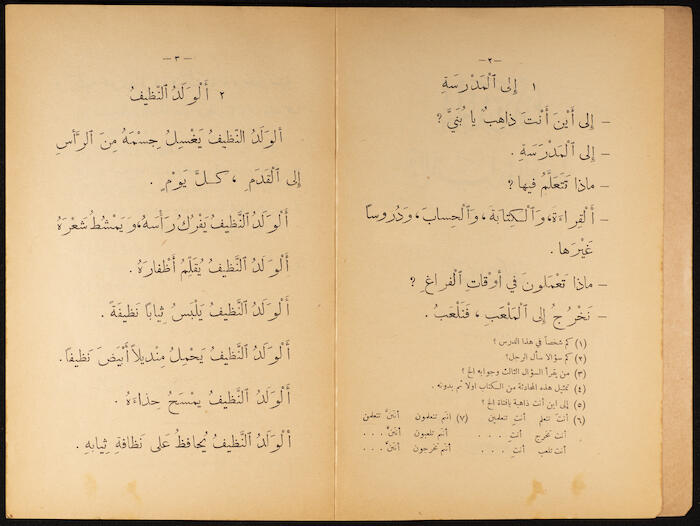 — ٢ —
١ إِلى ٱلْمَدْرَسَةِ
— إِلى أَيْنَ أَنْتَ ذاهِبٌ يا بُنَيَّ ؟
— إِلى ٱلْمَدْرَسَةِ .
— ماذا تَتَعَلَّمُ فيها ؟
— أَلْقِراءَةَ، وَٱلْكِتابَةَ، وَٱلْحِسابَ، وَدُروساً
غَيْرَها .
— ماذا تَعْمَلونَ في أَوْقاتِ ٱلْفَراغِ ؟
— نَخْرُجُ إِلى ٱلْمَلْعَبِ ، فَنَلْعَبُ .
(١) كم شخصاً في هذا الدرس ؟
(٢) كم سؤالا سأل الرجل؟
(٣) من يقرأ السؤال الثالث وجوابه الخ ؟
(٤) تمثيل هذه المحادثة من الكتاب اولا ثم بدونه .
(٥) إلى اين أنت ذاهبة يافتاة الخ ؟
(٦) أنتَ تتعلم أنتِ تتعلمين (٧) انتم تتعلمون أنتنَّ تتعلمن
أنت تخرج أنتِ . . . أنتم تلعبون أنتنَّ . . .
أنت تلعب أنتِ . . . أنتم تخرجون أنتنَّ . . .
— ٣ —
٢ أَلْوَلَدُ ٱلنَّظيفُ
أَلوَلَدُ النَّظيفُ يَغْسِلُ جِسْمَهُ مِنَ ٱلرَّأْسِ
إِلى ٱلْقَدَمِ ، كُلَّ يَوْمٍ .
أَلْوَلَدُ ٱلنَّظيفُ يَفْرُكُ رَأْسَهُ، وَيَمْشُطُ شَعْرَهُ
أَلْوَلَدُ ٱلنَّظيفُ يُقَلِّمُ أَظْفارَهُ .
أَلْوَلَدُ ٱلنَّظيفُ يَلْبَسُ ثِيابًا نَظيفَةً .
أَلْوَلَدُ ٱلنَّظيفُ يَحْمِلُ مِنْديلاً أَبْيَضَ نَظيفًا .
أَلْوَلَدُ ٱلنَّظيفُ يَمْسَحُ حِذاءَهُ .
أَلْوَلَدُ ٱلنَّظيفُ يُحافِظُ عَلى نَظافَةِ ثِيابِهِ .